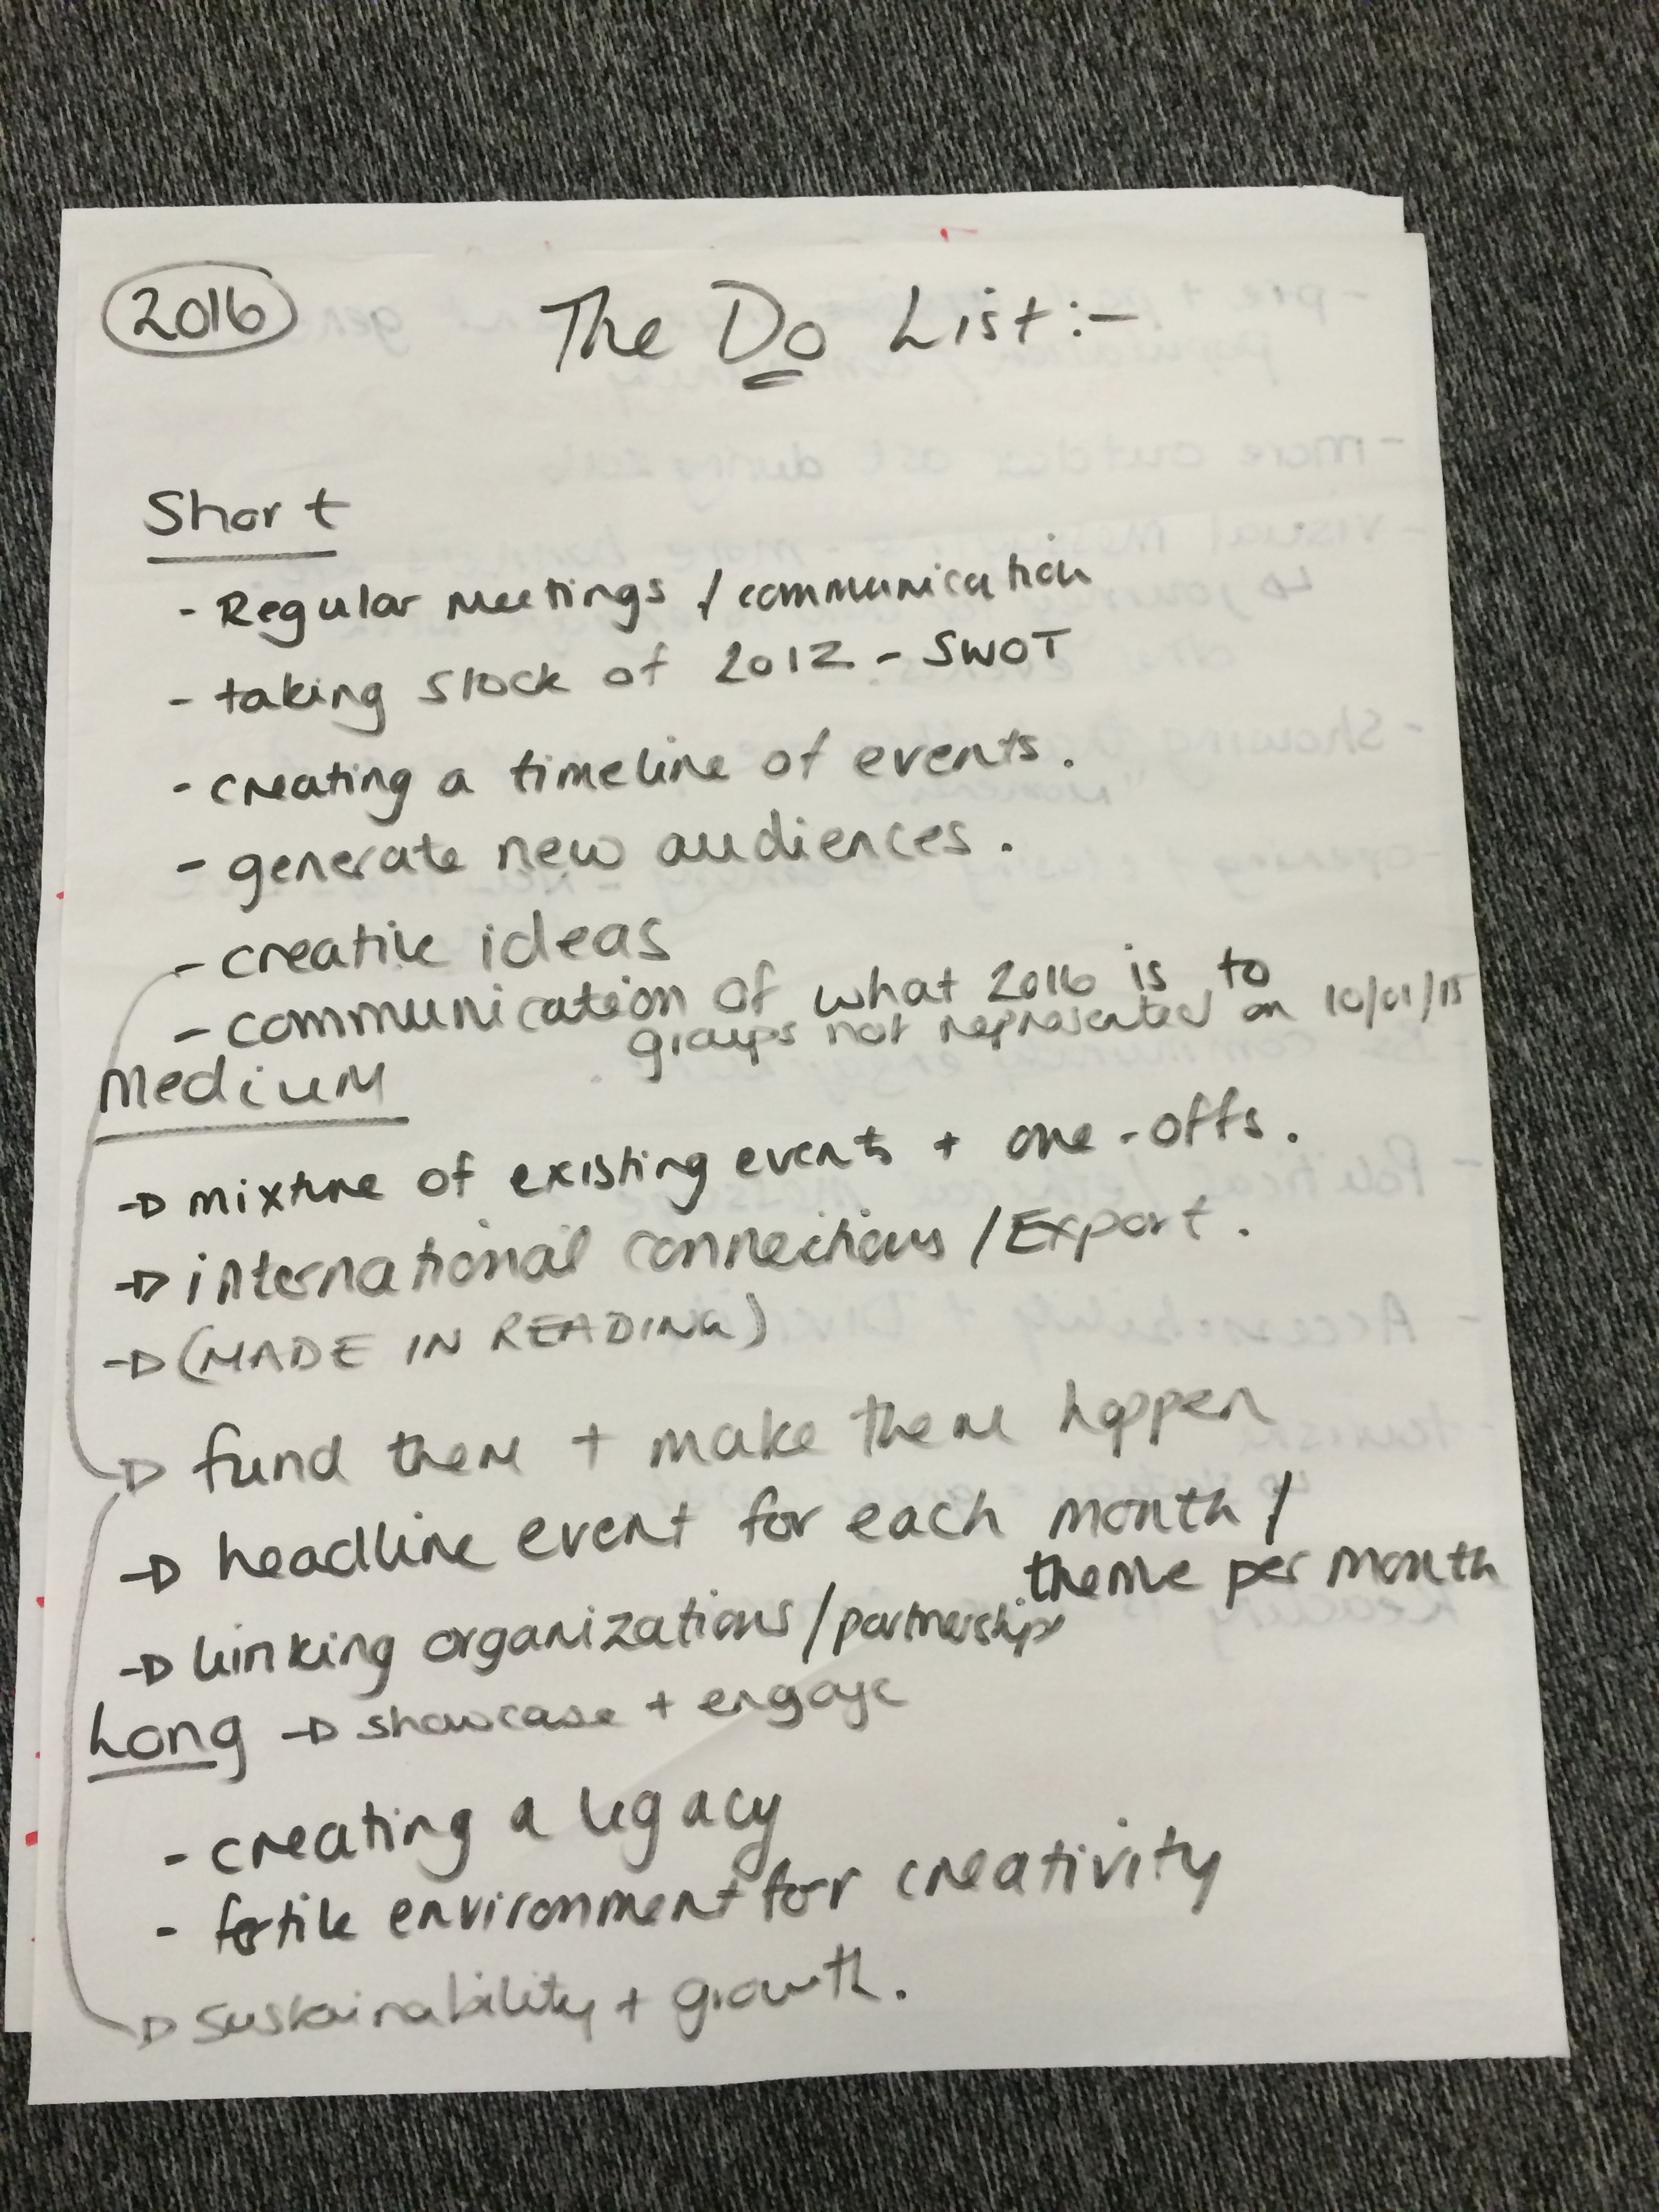 2016
The Do List:-
Short
- Regular Meetings / communication
- taking stock of 2012 - SWOT
- creating a timeline of events.
- generate new audiences.
- creative ideas
- communication of what 2016 is to
groups not represented on 10/01/15
Medium
→ mixture of existing events + one-offs.
→ international connections / Export.
→ (MADE IN READING)
→ fund them + make them happen
→ headline event for each month /
theme per month
→ linking organizations / partnerships
Long → showcase + engage
- creating a legacy
- fertile environment for creativity
→ sustainability + growth.